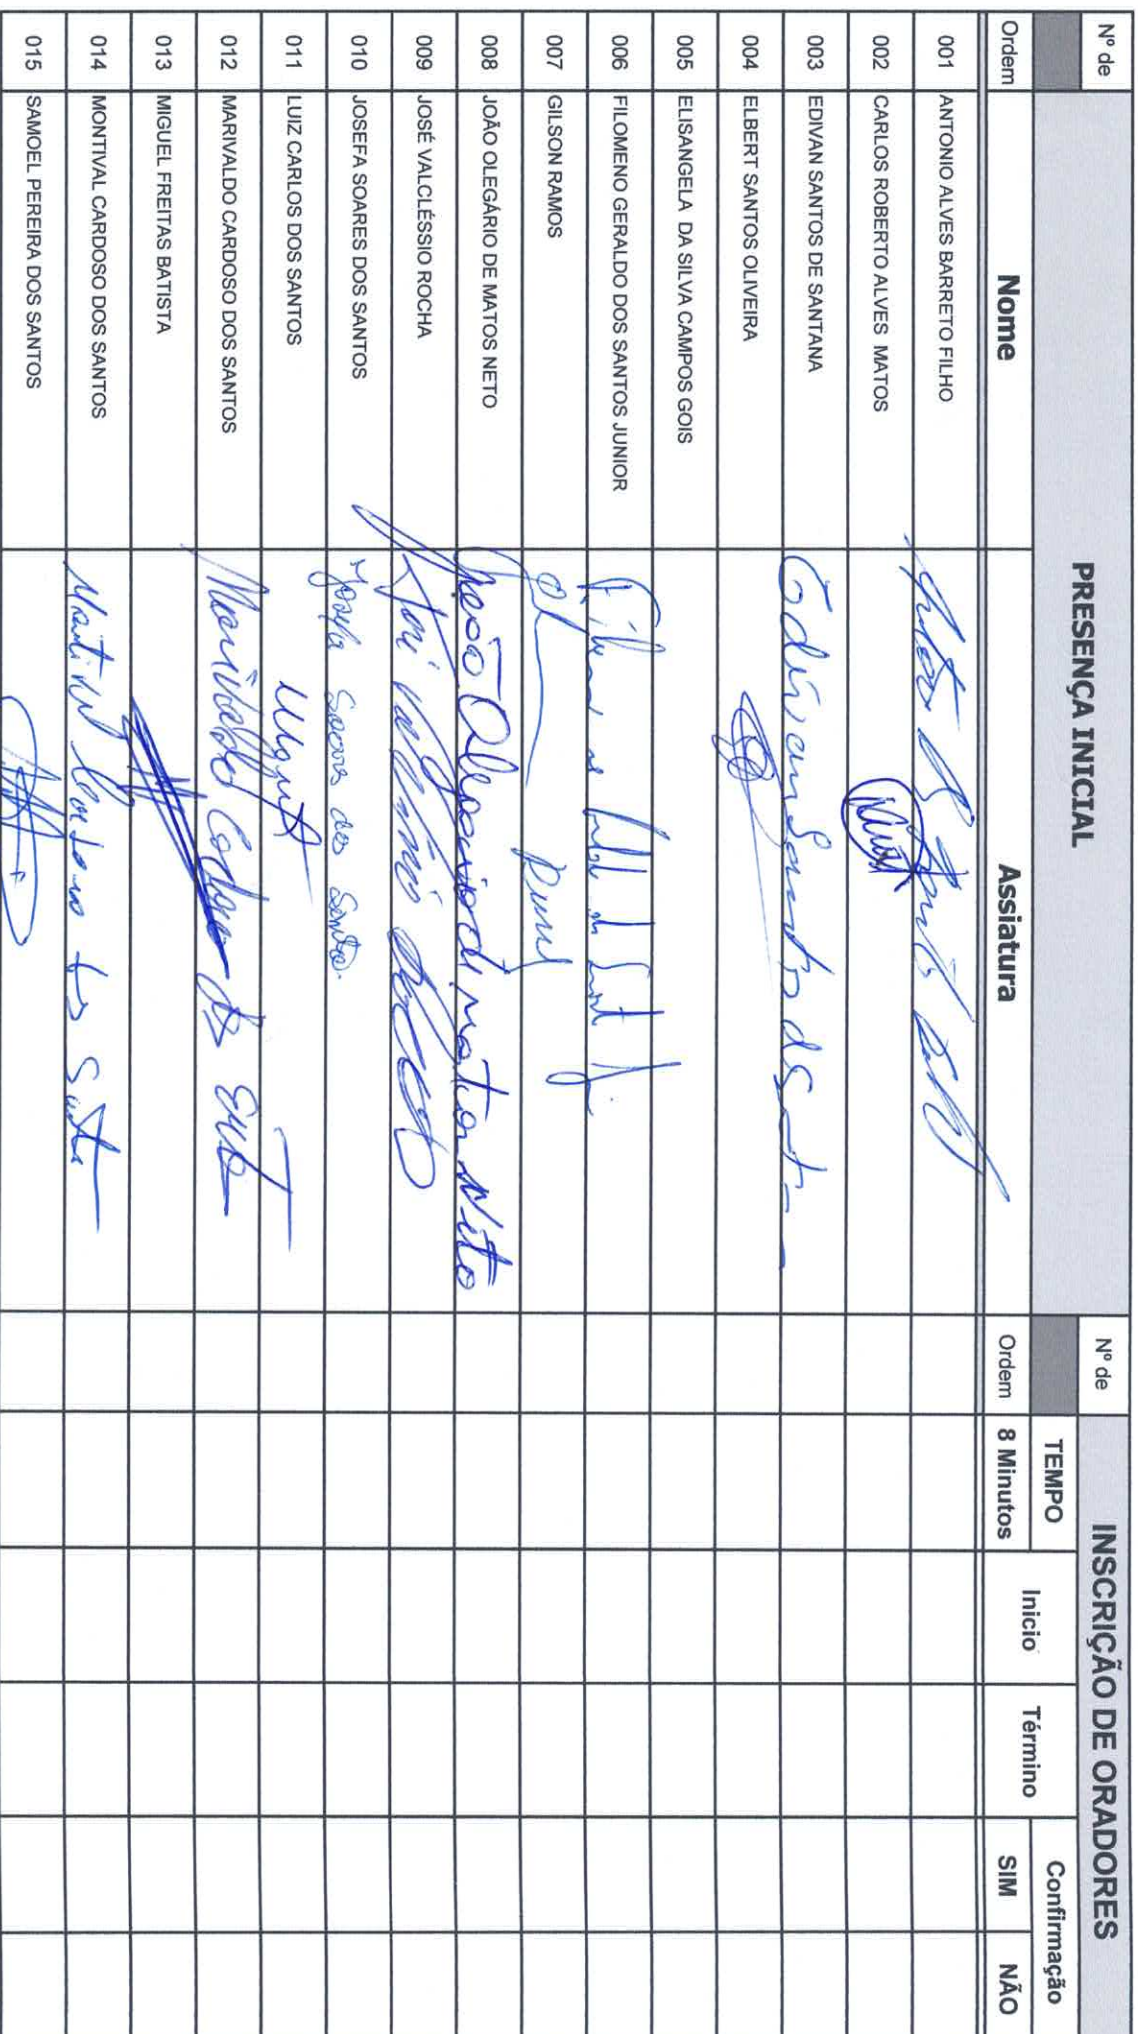 Nº de PRESENÇA INICIAL Nº de INSCRIÇÃO DE ORADORES
TEMPO Confirmação
Ordem Nome Assiatura Ordem 8 Minutos Inicio Término SIM NÃO
001 ANTONIO ALVES BARRETO FILHO
002 CARLOS ROBERTO ALVES MATOS
003 EDIVAN SANTOS DE SANTANA Edivan Santos de
004 ELBERT SANTOS OLIVEIRA
005 ELISANGELA DA SILVA CAMPOS GOIS
006 FILOMENO GERALDO DOS SANTOS JUNIOR
007 GILSON RAMOS
008 JOÃO OLEGÁRIO DE MATOS NETO João Olegario di matos Neto
009 JOSÉ VALCLÉSSIO ROCHA
010 JOSEFA SOARES DOS SANTOS Josefa Soares dos Santos
011 LUIZ CARLOS DOS SANTOS
012 MARIVALDO CARDOSO DOS SANTOS Marivaldo
013 MIGUEL FREITAS BATISTA
014 MONTIVAL CARDOSO DOS SANTOS
015 SAMOEL PEREIRA DOS SANTOS